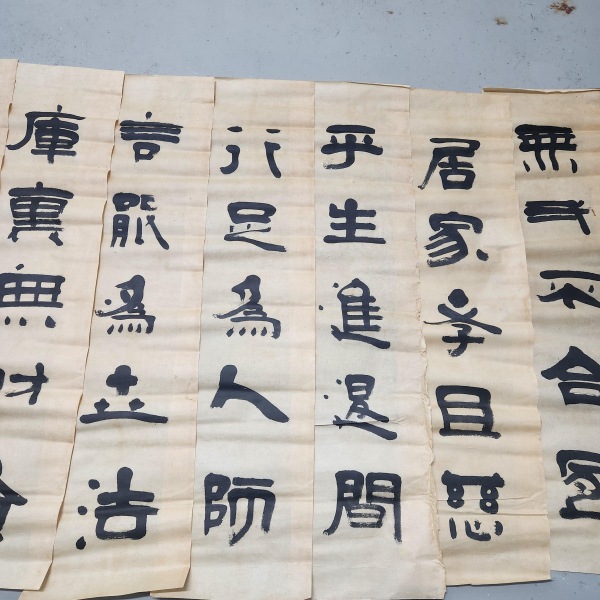 無不合
居家孝且慈
平生進退間
行足為人師
言能為立法
庫裏無財